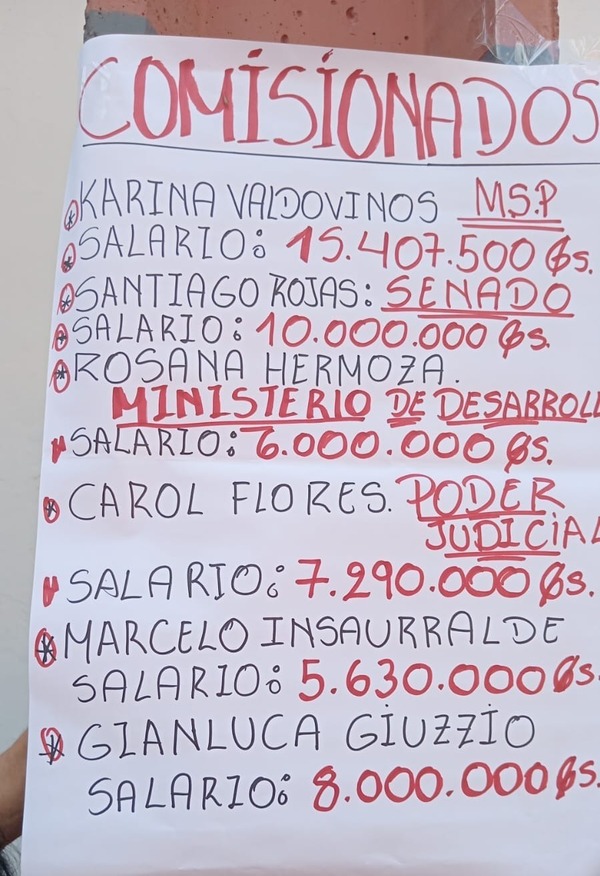 COMISIONADOS
KARINA VALDOVINOS M.S.P
SALARIO: 15.407.500 ₲s.
SANTIAGO ROJAS: SENADO
SALARIO: 10.000.000 ₲s.
ROSANA HERMOZA.
MINISTERIO DE DESARROLL
SALARIO: 6.000.000 ₲s.
CAROL FLORES. PODER
JUDICIAL
SALARIO: 7.290.000 ₲s.
MARCELO INSAURRALDE
SALARIO: 5.630.000 ₲s.
GIANLUCA GIUZZIO
SALARIO: 8.000.000 ₲s.